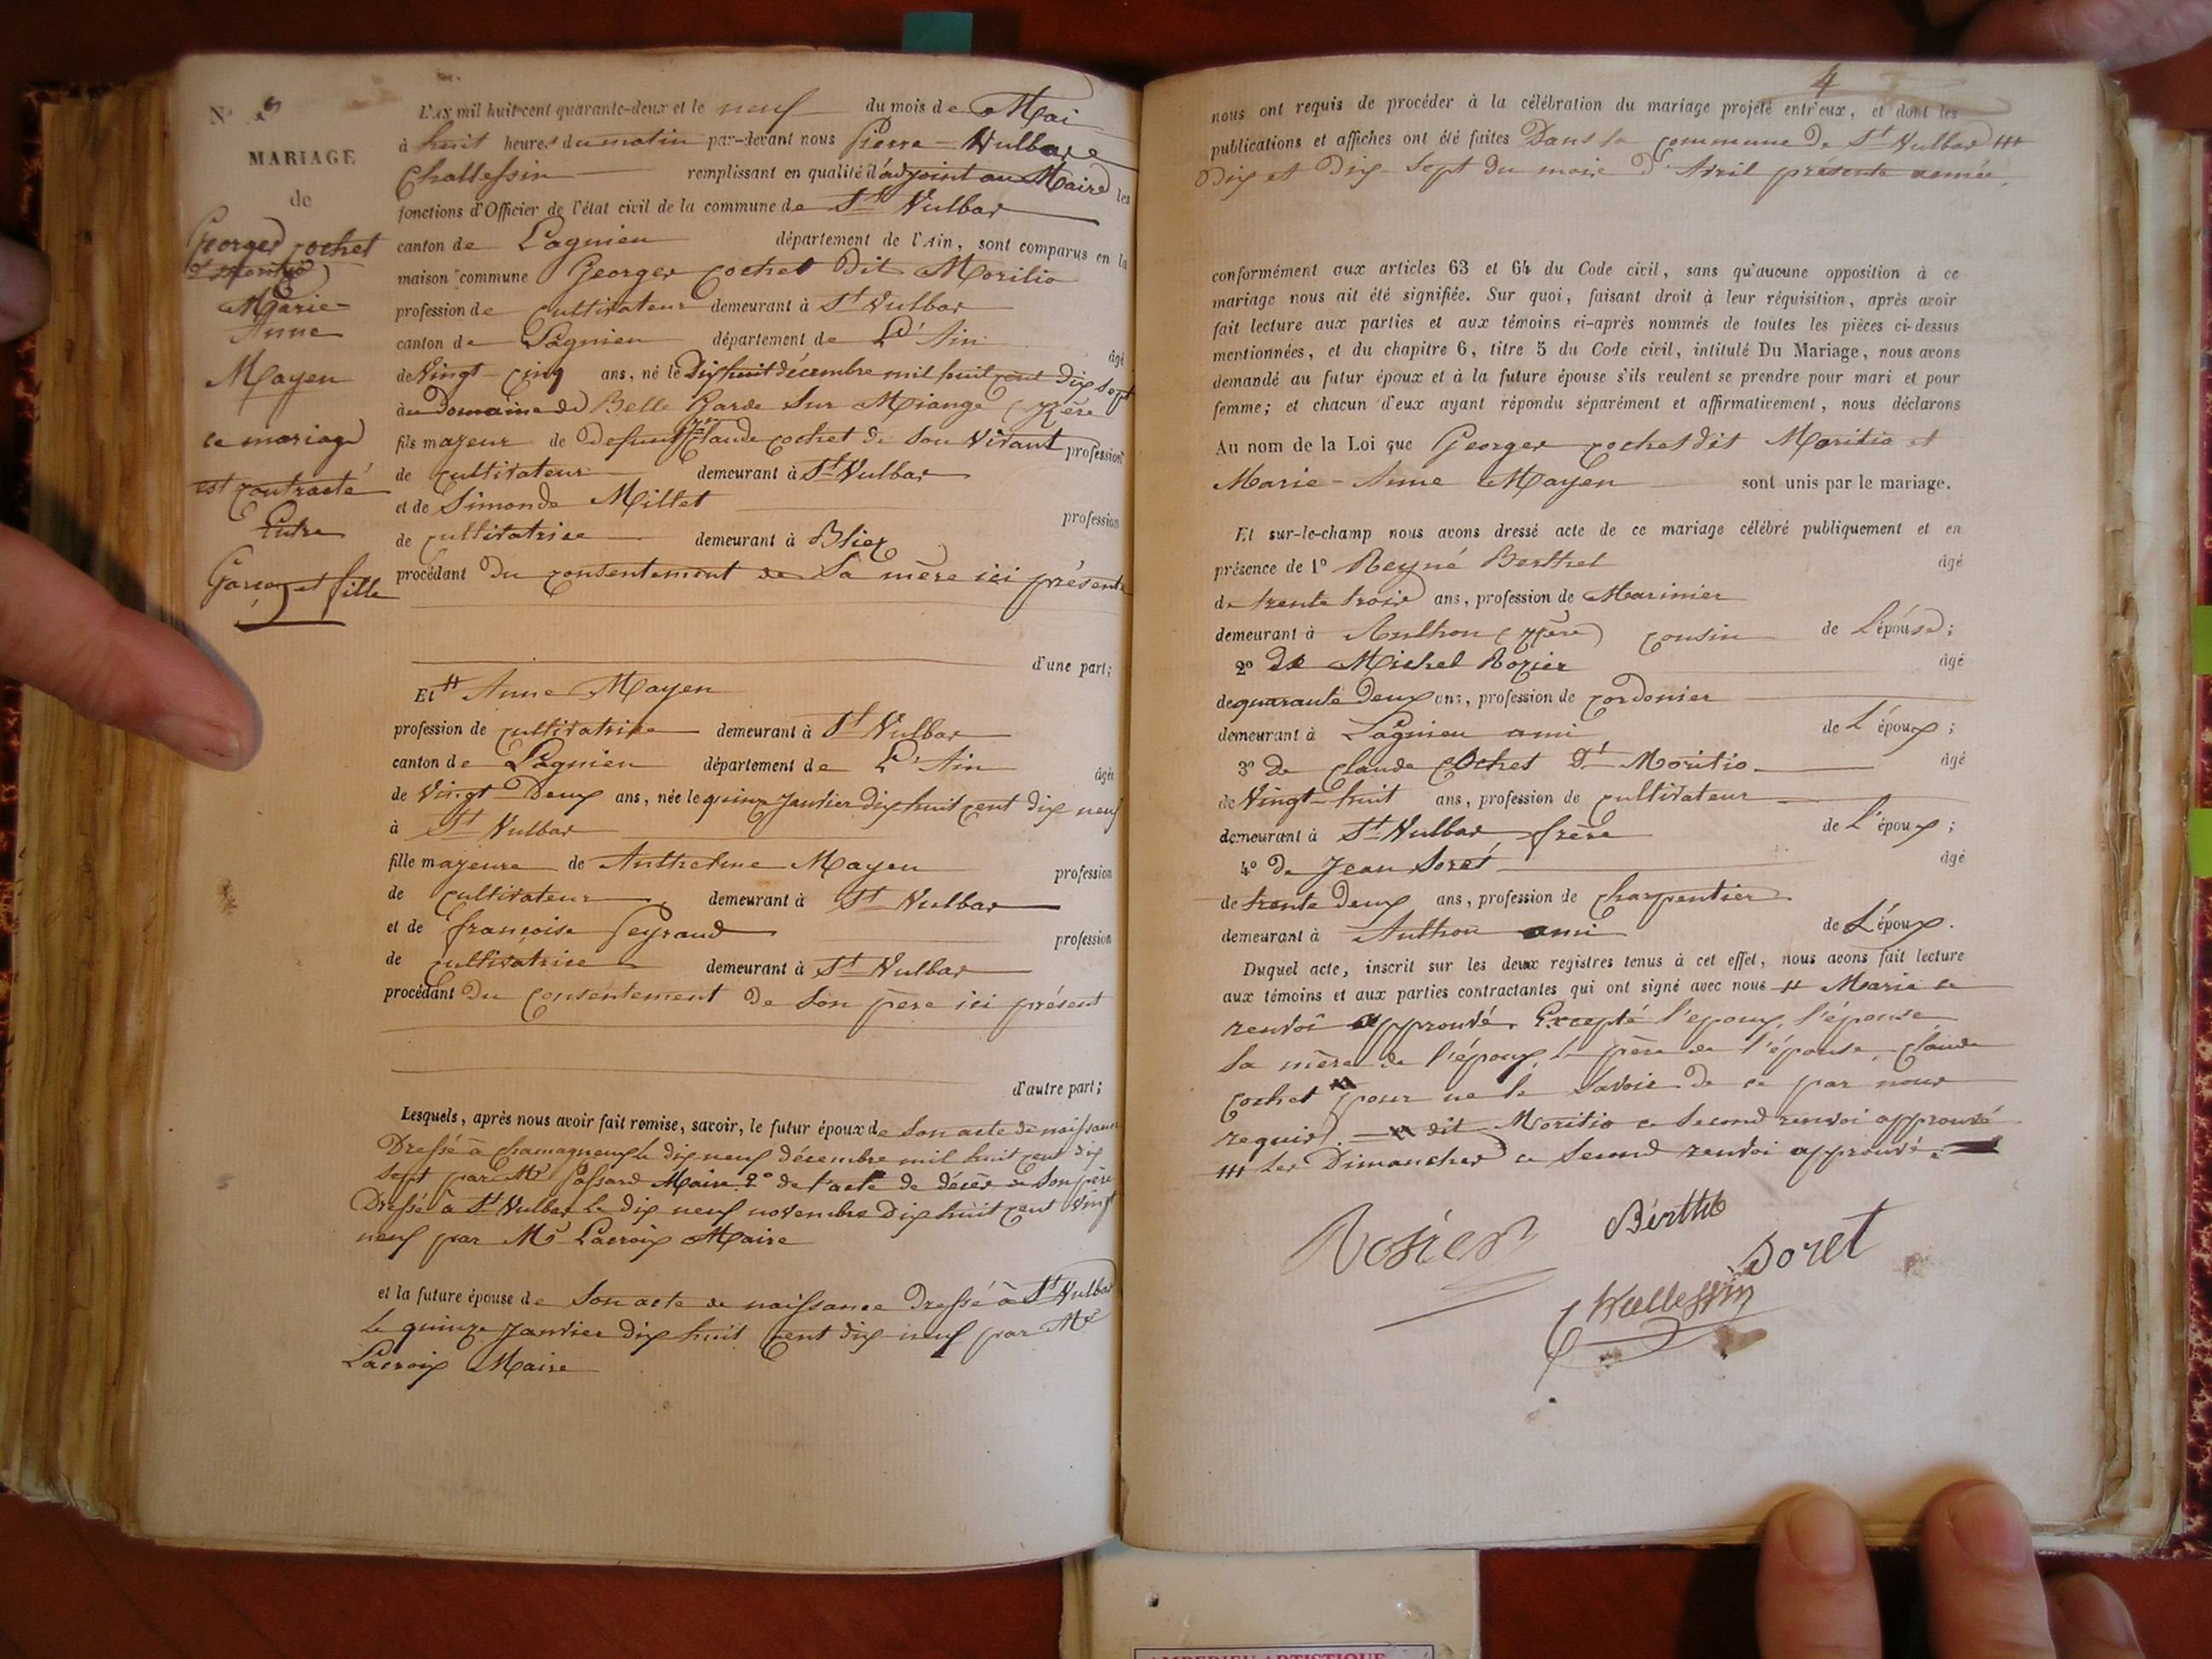 N°
MARIAGE
de
Georges cochet
dt Moritio
Marie-
Anne
Mayen
ce mariage
est contracté
Entre
Garçon et fille
L'AN mil huit-cent quarante-deux et le neuf du mois de Mai
à huit heures du matin par-devant nous Pierre-Vulbas
Challessin remplissant en qualité d'adjoint au Maire les
fonctions d'Officier de l'état civil de la commune de St Vulbas
canton de Lagnieu département de l'Ain, sont comparus en la
maison commune Georges cochet dit Moritio
profession de cultivateur demeurant à St Vulbas
canton de Lagnieu département de L'Ain âgé
de Vingt-cinq ans, né le Dixhuit décembre mil huit cent dix sept
au Domaine de Belle Garde sur Miange (Isère
fils majeur de Defunt Claude cochet de son Vivant profession
de cultivateur demeurant à St Vulbas
et de Simonde Millet profession
de cultivatrice demeurant à Bliex
procédant du consentement de Sa mère ici présente
d'une part;
Et # Anne Mayen
profession de cultivatrice demeurant à St Vulbas
canton de Lagnieu département de L'Ain âgée
de Vingt-Deux ans, née le quinze Janvier dix huit cent dix neuf
à St Vulbas
fille majeure de Anthelme Mayen profession
de cultivateur demeurant à St Vulbas
et de françoise Peyraud profession
de cultivatrice demeurant à St Vulbas
procédant Du consentement de Son père ici présent
d'autre part;
Lesquels, après nous avoir fait remise, savoir, le futur époux de Son acte de naissance
Dressé à Chamagneux le dix neuf décembre mil huit cent dix
sept par Mr Passard Maire 2° de l'acte de décès de Son père
Dressé à St Vulbas Le dix neuf novembre Dix huit cent vingt
neuf par Mr Lacroix Maire
et la future épouse de Son acte de naissance Dressé à St Vulbas
Le quinze Janvier dix huit cent dix neuf par Mr
Lacroix Maire
4
nous ont requis de procéder à la célébration du mariage projeté entr'eux, et dont les
publications et affiches ont été faites Dans la commune de St Vulbas ##
Dix et Dix-Sept du mois d'Avril présente année,
conformément aux articles 63 et 64 du Code civil, sans qu'aucune opposition à ce
mariage nous ait été signifiée. Sur quoi, faisant droit à leur réquisition, après avoir
fait lecture aux parties et aux témoins ci-après nommés de toutes les pièces ci-dessus
mentionnées, et du chapitre 6, titre 5 du Code civil, intitulé Du Mariage, nous avons
demandé au futur époux et à la future épouse s'ils veulent se prendre pour mari et pour
femme; et chacun d'eux ayant répondu séparément et affirmativement, nous déclarons
Au nom de la Loi que Georges cochet dit Moritio et
Marie-Anne Mayen sont unis par le mariage.
Et sur-le-champ nous avons dressé acte de ce mariage célébré publiquement et en
présence de 1° Reyné Berthet âgé
de trente trois ans, profession de Marinier
demeurant à Anthon (Isère) cousin de L'épouse;
2° de Michel Rozier âgé
de quarante Deux ans, profession de cordonier
demeurant à Lagnieu ami de L'époux;
3° De claude Cochet Dt Moritio âgé
de Vingt-huit ans, profession de cultivateur
demeurant à St Vulbas frère de L'époux;
4° De Jean Soret âgé
de trente deux ans, profession de charpentier
demeurant à Anthon ami de L'époux.
Duquel acte, inscrit sur les deux registres tenus à cet effet, nous avons fait lecture
aux témoins et aux parties contractantes qui ont signé avec nous # Marie ce
renvoi approuvé. Excepté l'epoux, l'épouse
la mère de l'époux, le père de l'épouse, claude
Cochet pour ne le Savoir de ce par nous
requis. dit Moritio ce Second renvoi approuvé
## les Dimanches ce Second renvoi approuvé.
Rosier
Berthe
Soret
Challessin